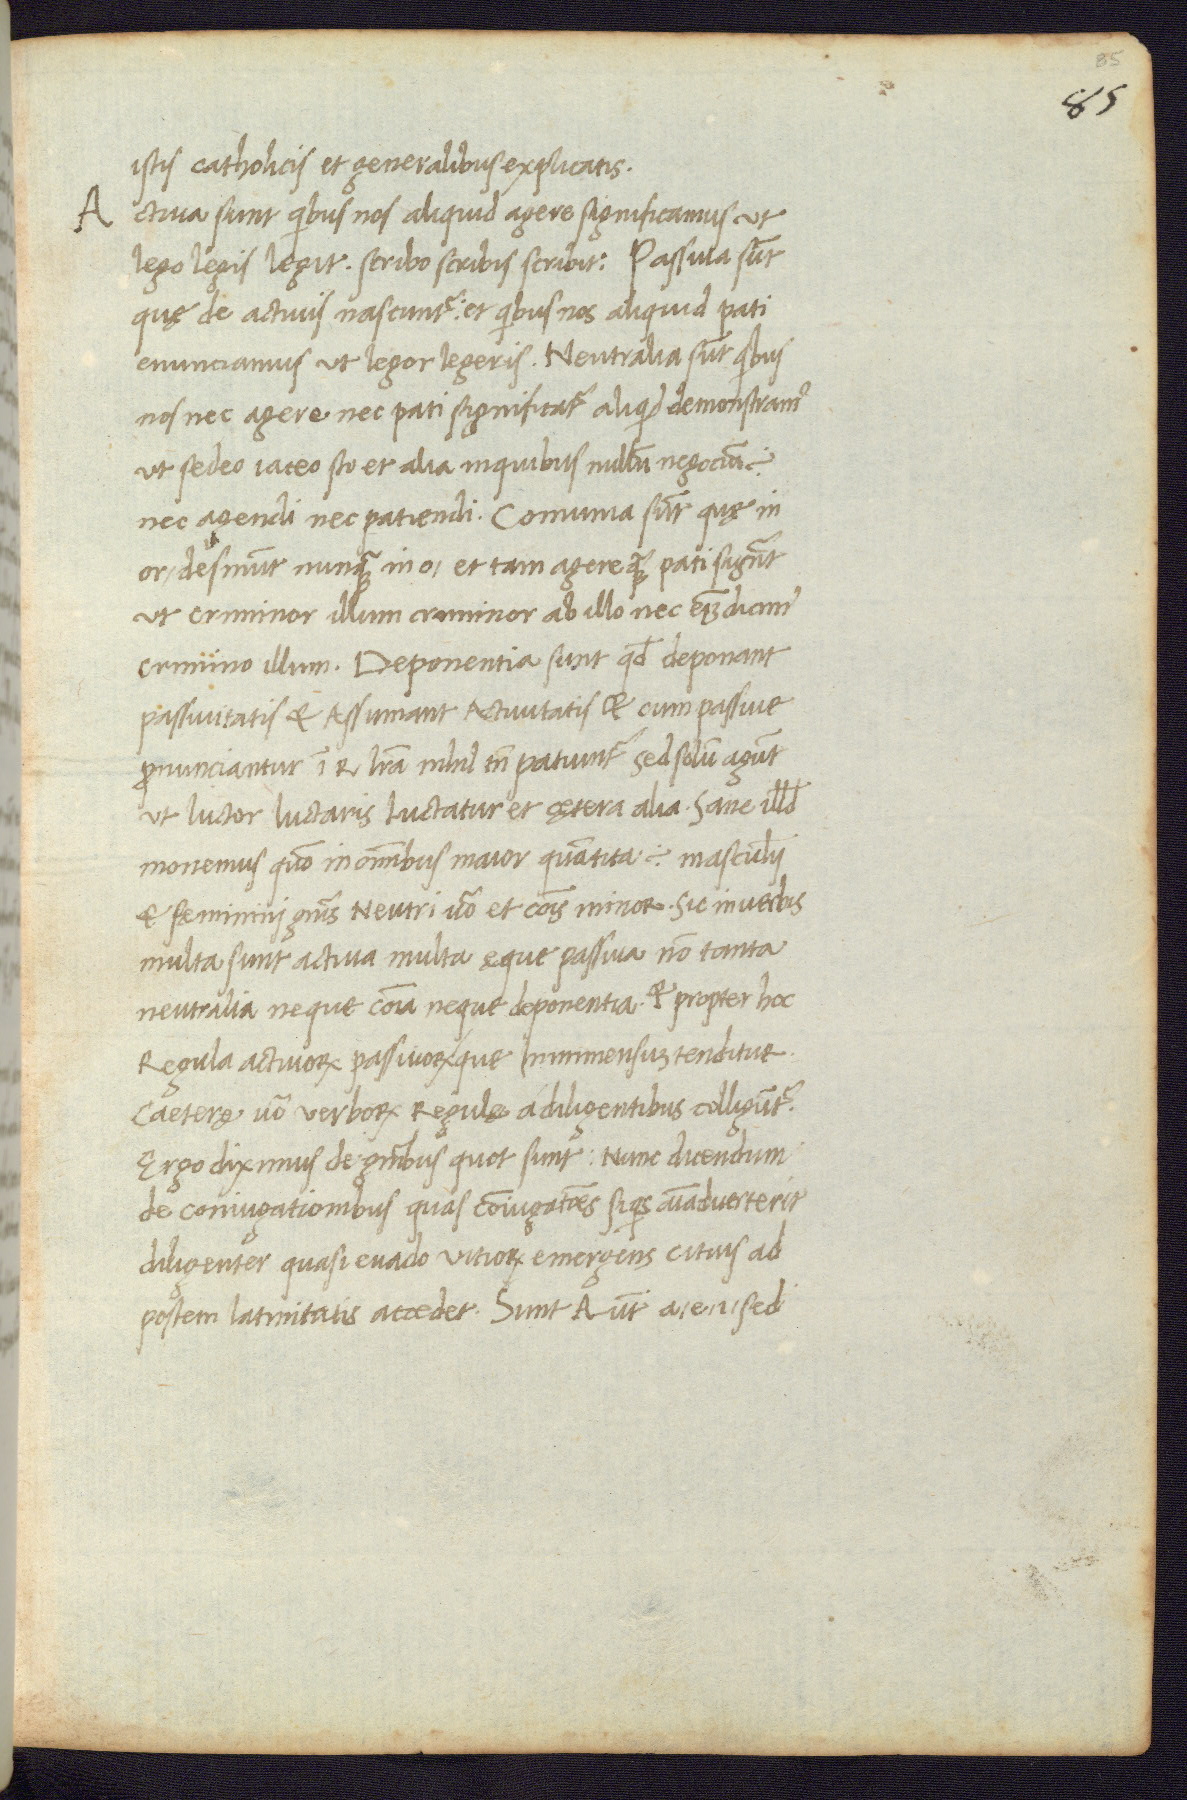 85
85
istis catholicis et generalibus explicatis.
Actiua sunt qͥbus nos aliquid agere significamus ut
lego legis legit. scribo scribis scribit: Passiua sūt
quę de actiuis nascuntᷣ: et qͥbus nos aliquid pati
enunciamus ut legor legeris. Neutralia sūt qͥbus
nos nec agere nec pati significatᷣ aliqͥd demonstramꝰ
ut sedeo iaceo sto et alia inquibus nullū negociū ÷
nec agendi nec patiendi. Comunia sūt quę in
or, desinūt nunqᷓꝫ in o, et tam agere qᷓꝫ pati sigᷓnt
ut criminor illum criminor ab illo nec eīꝫ dicimꝰ
crimino illum. Deponentia sunt qd̄ deponant
passiuitatis & Assumant Actiuitatis & cum passiue
ꝓnunciantur ī R lr̄a nihil tn̄ patiuntᷣ sed solū agūt
ut luctor luctaris Luctatur et cętera alia. Sane illd̄
monemus quō in om̄ibus maior quātita ÷ masculīi
& fęminini gn̄is Neutri uͦo et cōis minor. Sic in uerbis
multa sunt actiua multa ęque passiua nō tanta
neutralia neque cōia neque deponentia. & propter hoc
Regula actiuoꝝ passiuoꝝque Inmmensuꝫ tenditur.
Caeterę uͦo verboꝝ Regulę a diligentibus colligūtᷣ.
Ergo diximus de gn̄ibus quot sunt: Nunc dicendum
de coniugationibus quas cōiugatōes siqͥs aīaduerterit
diligenter quasi euado vitioꝝ emergens citius ad
postem latinitatis accedet. Sunt Aūt a, e, i, sed